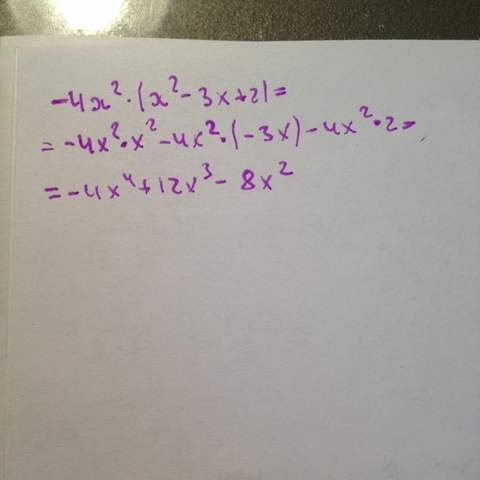 -4x²·(x²-3x+2)=
=-4x²·x²-4x²·(-3x)-4x²·2=
=-4x⁴+12x³-8x²